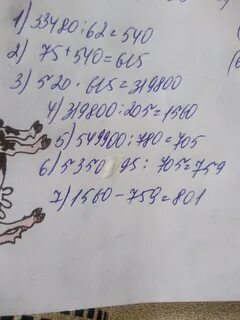 1) 33480:62=540
2) 75+540=615
3) 520·615=319800
4) 319800:205=1560
5) 549900:780=705
6) 5350 95: 705=759
7) 1560-759=801